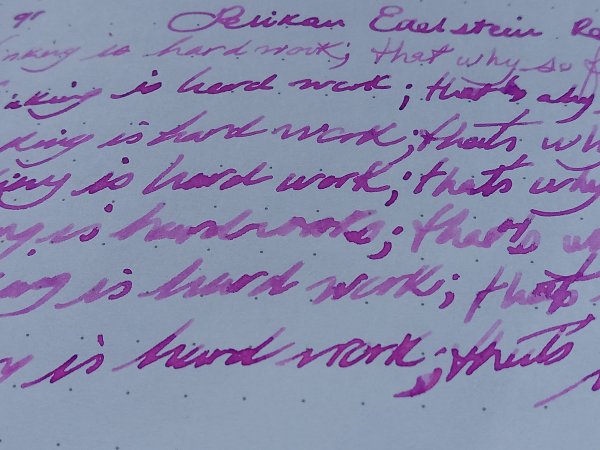 Pelikan Edelstein
inking is hard work; that why so f
inking is hard work; thats why
king is hard work; thats wh
king is hard work; thats why
ng is hard work; thats w
ing is hard work; thats
y is hard work; thats